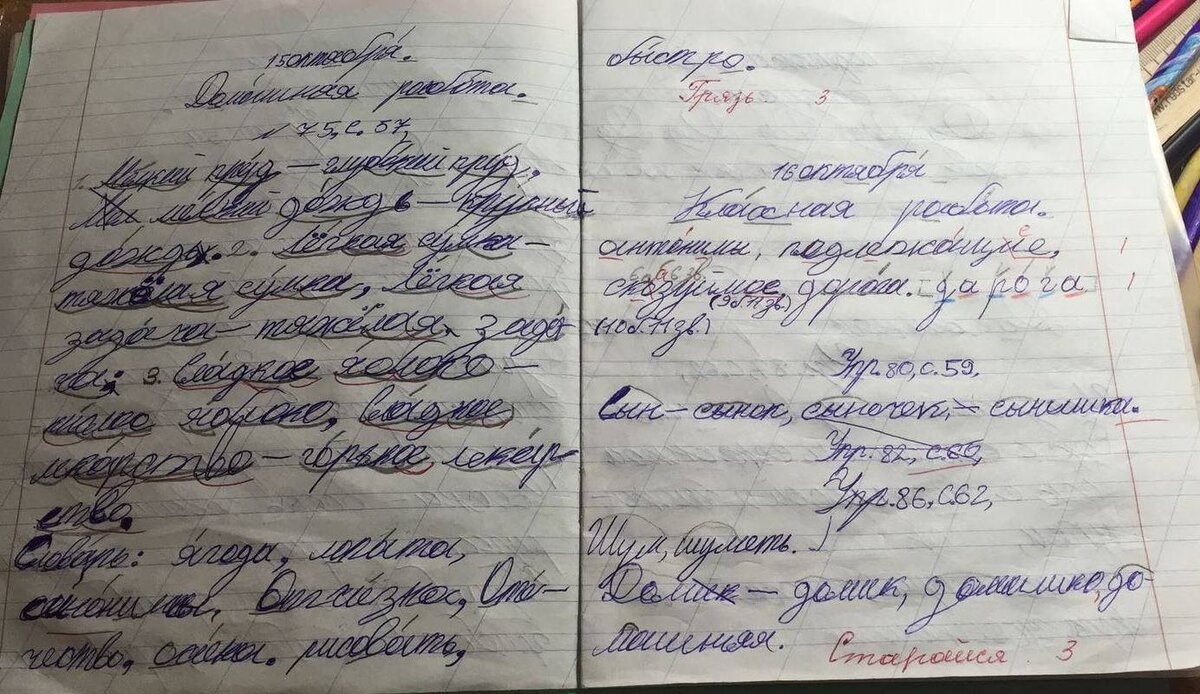 15 октября.
Домашная работа.
№ 75, с. 57,
Мелкий пруд — глубокий пруд,
мелкий дождь — крупный
дождь. 2. Лёгкая сумка —
тяжёлая сумка, Лёгкая
задача — тяжёлая зада-
ча; 3. Сладкое яблоко —
кислое яблоко, Сладкое
лекарство — горькое лекар-
ство.
Словарь: ягода, лопата,
синонимы, Отчизна, Оте-
чество, осина. рисовать,
быстро.
Грязь 3
16 октября
Классная работа.
антонимы, подлежащие, 1
сказуимое дорога. [дарога 1
(9б. 11зв.)
(10б. 11зв.)
Упр. 80, с. 59,
Сын — сынок, сыночек, — сынишка.
Упр. 82, с. 60,
Упр. 86, с. 62,
Шум, шуметь.
Домик — домик, домишко, до-
машняя.
Старайся 3